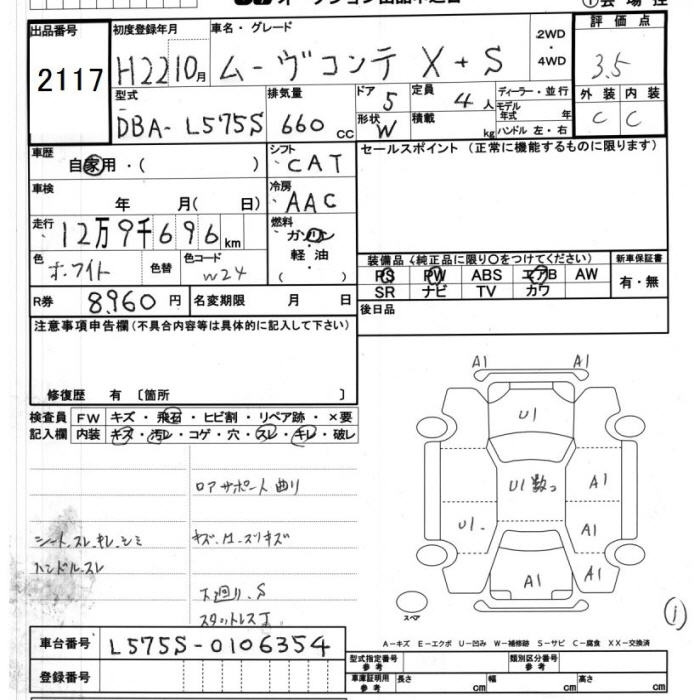 出品番号 初度登録年月 車名・グレード 2WD 評価点
2117 H22 10月 ムーヴコンテ X+S 4WD 3.5
型式 排気量 ドア 5 定員 4人 ディーラー・並行 外装 内装
DBA-L575S 660 CC 形状 W 積載 kg モデル年式 年 C C
ハンドル 左・右
車歴 自家用・( ) シフト CAT セールスポイント(正常に機能するものに限ります)
車検 年 月( 日) 冷房 AAC
走行 12万9千696km 燃料 ガソリン
軽油
( )
色 ホワイト 色替 色コード W24 装備品(純正品に限り○をつけてください) 新車保証書
PS PW ABS エアB AW 有・無
SR ナビ TV カワ
R券 8,960円 名変期限 月 日 後日品
注意事項申告欄(不具合内容等は具体的に記入して下さい)
修復歴 有 〔箇所 〕
検査員 FW キズ・飛石・ヒビ割・リペア跡・×要
記入欄 内装 キズ・汚レ・コゲ・穴・スレ・キレ・破レ
A1 A1
U1
ロアサポート曲り
U1 数つ A1
U1 A1
シート.スレ.キレ.シミ
ハンドル.スレ
A1 A1
下廻り.S
スタットレスT
スペア
A-キズ E-エクボ U-凹み W-補修跡 S-サビ C-腐食 XX-交換済
車台番号 L575S-0106354
型式指定番号参考 類別区分番号参考
登録番号 車庫証明用参考 長さ cm 幅 cm 高さ cm